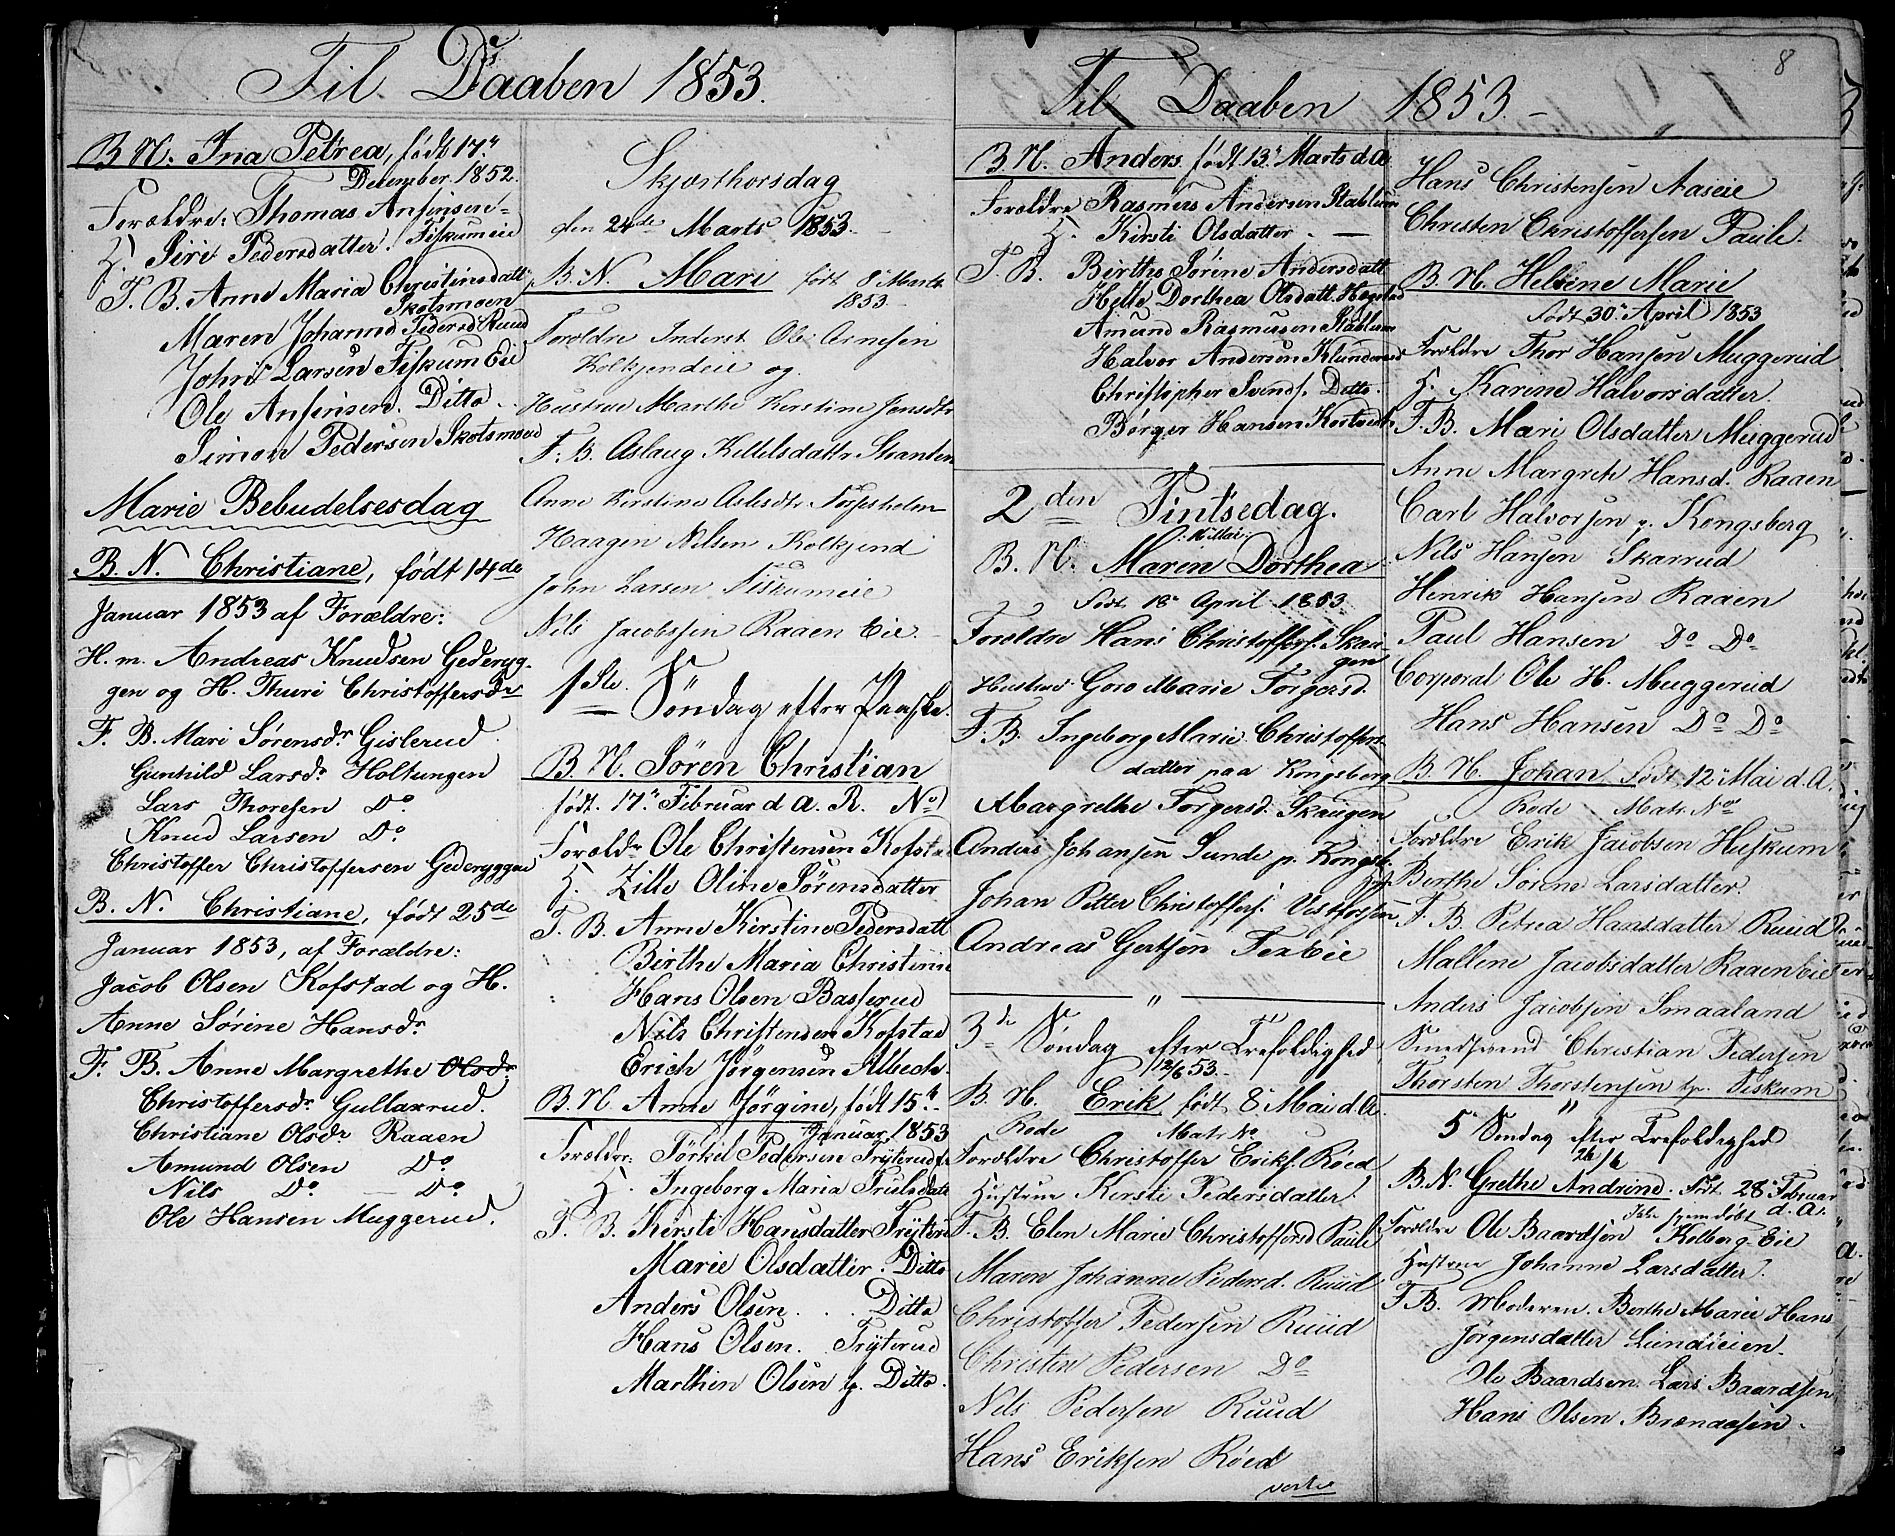 Til Daaben 1853.
B. N. Ina Petrea, født 17.
December. 1852.
Forældre: Thomas Ansensen
Fiskumeie
H. Siri Pedersdatter.
F. B. Anne Maria Christinsdatt
Skotsmoen
Maren Johanne Pedersd Ruud
John Larsen Fiskum Eie
Ole Ansensen. Ditto.
Simon Pedersen Skotsmoen
Marie Bebudelsesdag
B. N. Christiane, født 14de
Januar 1853 af Forældre:
H. m. Andreas Knudsen Gederyg-
gen og H. Thuri Christoffersdr
F. B. Mari Sørensdr Gislerud
Gunhild Larsdr Holtungen
Lars Thoresen Do
Knud Larsen Do
Christoffer Christoffersen Gederyggen
B. N. Christiane, født 25de
Januar 1853, af Forældre:
Jacob Olsen Kofstad og H.
Anne Sørine Hansdr
F. B. Anne Margrethe Olsdr
Christoffersdr Gullaxrud.
Christiane Olsdr Raaen
Amund Olsen Do
Nils Do — Do
Ole Hansen Muggerud.
Skjærthorsdag
den 24de Marts 1853.
B. N. Mari født 8 Marts
1853
Forældre Inderst Ole Arnesen
Kolkjendeie og
Hustrue Marthe Kerstine Jensdtr
F. B. Aslaug Kittelsdattr Stranden
Anne Kirstine Aslesdtr Torjesholm
Haagen Nilsen Kolkjend
John Larsen Fiskumeie
Nils Jacobssen Raaen Eie.
1ste Søndag efter Paaske.
B. N. Søren Christian
født 17. Februar d. A. R. No
Foreldr Ole Christensen Kofstad
H. Zille Oline Sørensdatter
F. B. Anne Kirstine Pedersdatt
Birthe Maria Christinne
Hans Olsen Basserud
Nils Christensen Kofstad
Erich Jørgensen Albech.
B. N. Anne Jørgine, født 15.
Januar 1853
Forældre: Törkel Pedersen Tryterud
H. Ingeborg Maria Trulsdatt
F. B. Kirsti Hansdatter Trÿterud
Marie Olsdatter. Ditto
Anders Olsen. . . Ditto
Hans Olsen. Trÿterud
Marthin Olsen Ditto.
Til Daaben 1853.
8
B. N. Anders født 13. Marts d. A.
Forældre Rasmus Andersen Stablum
H. Kirsti Olsdatter. —
F. B. Birthe Sørine Andersdatt
Helle Dorthea Olsdatt. Hogstad
Amund Rasmusen Stablum
Halvor Andersen Klunderud
Christopher Svends. Ditto.
Börger Hansen Kortvedt
2den Pintsedag.
B. N. Maren Dorthea
Født 18. April 1853
Foreldre Hans Christoffers. Skau-
gen
Hustrue Goro Marie Torgersd.
F. B. Ingeborg Marie Christoffers-
datter paa Kongsberg
Margrethe Torgersd. Skaugen
Anders Johansen Sunde p. Kongsb.
Johan Petter Christoffers. Vestfossen
Andreas Gertsen Texleie
3de Søndag efter Trefoldighed
12/6 53.
B. N. Erik født 8 Mai d. A.
Rode Matr No
Forældre Christoffer Eriks. Röed
Hustrue Kirsti Pedersdatter.
F. B. Elen Marie Christoffersd Paule
Maren Johanne Pedersd. Ruud
Christoffer Pedersen Ruud
Christen Pedersen Do
Nils Pedersen Ruud
Hans Eriksen Röed
verte
Hans Christensen Aaseie
Christen Christoffersen Paule.
B. N. Helvine Marie
Født 30. April 1853
Forældre Thor Hansen Muggerud
H. Karene Halvorsdatter.
F. B. Mari Olsdatter Muggerud
Anne Margrete Hansd. Raaen
Carl Halvorsen p. Kongsberg
Nils Hansen Skarrud
Henrik Hansen Raaen
Paul Hansen Do Do
Corporal Ole H. Muggerud
Hans Hansen Do Do
B. N. Johan Født 12. Mai d. A.
Rode Matr. No
Forældre Erik Jacobsen Huskum
Berthe Sørine Larsdatter.
F. B. Petrea Hansdatter Ruud
Mallene Jacobsdatter Raaen Eie
Anders Jacobsen Smaaland
Smedsvend Christian Pedersen
Thorsten Thorstensen Fiskum
5. Søndag efter Trefoldighed
26/6
B. N. Grethe Andrine. Født 28. Februar
d. A.
Forældre Ole Baardsen Kolberg Eie
Hustrue Johanne Larsdatter.
F. B. Moderen. Berthe Marie Hans
Jørgensdatter Lundeieien.
Ole Baardsen. Lars Baardsen
Hans Olsen Brændaasen.